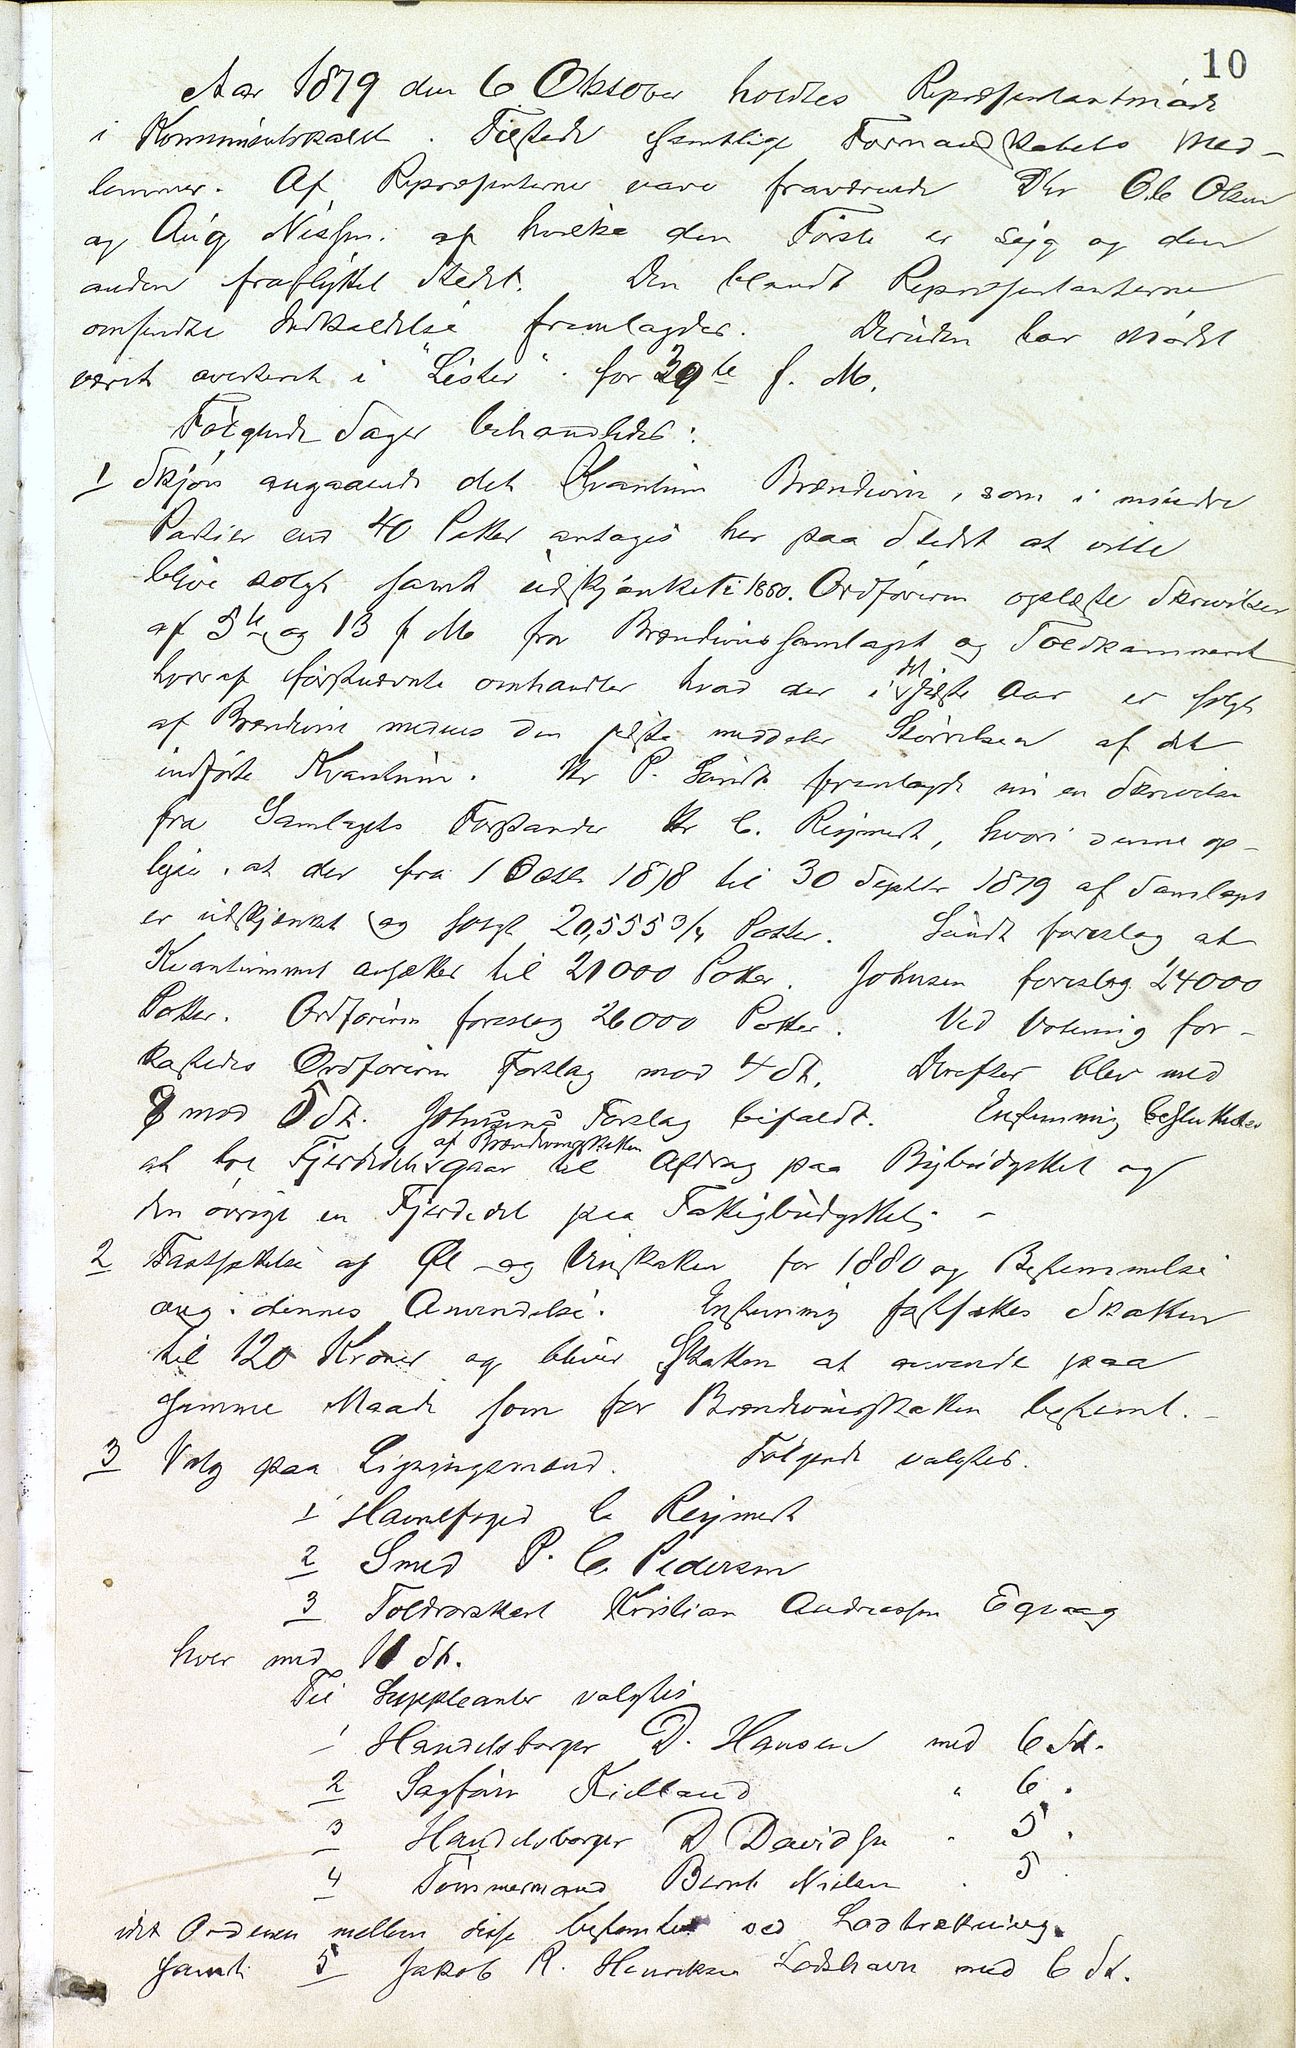 10
Aar 1879 den 6 Oktober holdtes Repræsentantmøde
i Kommunelokalet. Tilstede samtlige Formandskabets Med-
lemmer. Af Repræsenterne vare fraværende DHrr Ole Olsen
og Aug Nissen. af hvilke den Første er syg og den
anden fraflyttet Stedet. Den blandt Repræsentanterne
omsendte Indkaldelse fremlagdes. Desuden har Mødet
været averteret i "Lister" for 30te f. M.
Følgende Sager behandledes:
1 Skjøn angaaende det Kvantum Brændeviin, som i mindre
Partier end 40 Potter antages her paa Stedet at ville
blive solgt samt udskjænket i 1880. Ordføreren oplæste Skrivelser
af 3te og 13 f M fra Brændevinssamlaget og Toldkammeret
hvoraf førstnævnte omhandler hvad der i det sidste Aar er solgt
af Brændeviin medens den sidste meddeler Størrelsen af det
indførte Kvantum. Hr P. Sundt fremlagde nu en Skrivelse
fra Samlagets Forstander Hr C. Reymert, hvori denne op-
lyser, at der fra 1 Octbr 1878 til 30 Septbr 1879 af Samlaget
er udskjænket og solgt 20,555 3/4 Potter. Sundt foreslog at
Kvantummet ansættes til 21000 Potter. Johnsen foreslog 24000
Potter. Ordføreren foreslog 26000 Potter. Ved Votering for-
kastedes Ordførerens Forslag mod 4 St. Derefter blev med
8 mod 5 St. Johnsens Forslag bifaldt. Enstemmig besluttedes
at tre Fjerdedele af Brændevinsskatten gaar til Afdrag paa Bybudgettet og
den øvrige en Fjerdedel paa Fattigbudgettet. -
2 Fastsættelse af Øl- og Vinskatten for 1880 og Bestemmelse
ang. dennes Anvendelse. Enstemmig fastsattes Skatten
til 120 Kroner og bliver Skatten at anvende paa
samme Maade som for Brændevinsskatten bestemt. -
3 Valg paa Ligningsmænd. Følgende valgtes.
1 Havnefoged C Reymert
2 Smed P. C. Pedersen
3 Toldrorskarl Kristian Andreassen Egvaag
hver med 11 St.
Til Suppleanter valgtes
1 Handelsborger D. Hansen med 6 St.
2 Sagfører Kielland " 6 "
3 Handelsborger D Davidsen " 5 "
4 Tømmermand Bernt Nielsen " 5 "
idet Ordenen mellem disse bestemtes ved Lodtrækning.
samt 5 Jakob R. Henriksen Lodshavn med 6 St.